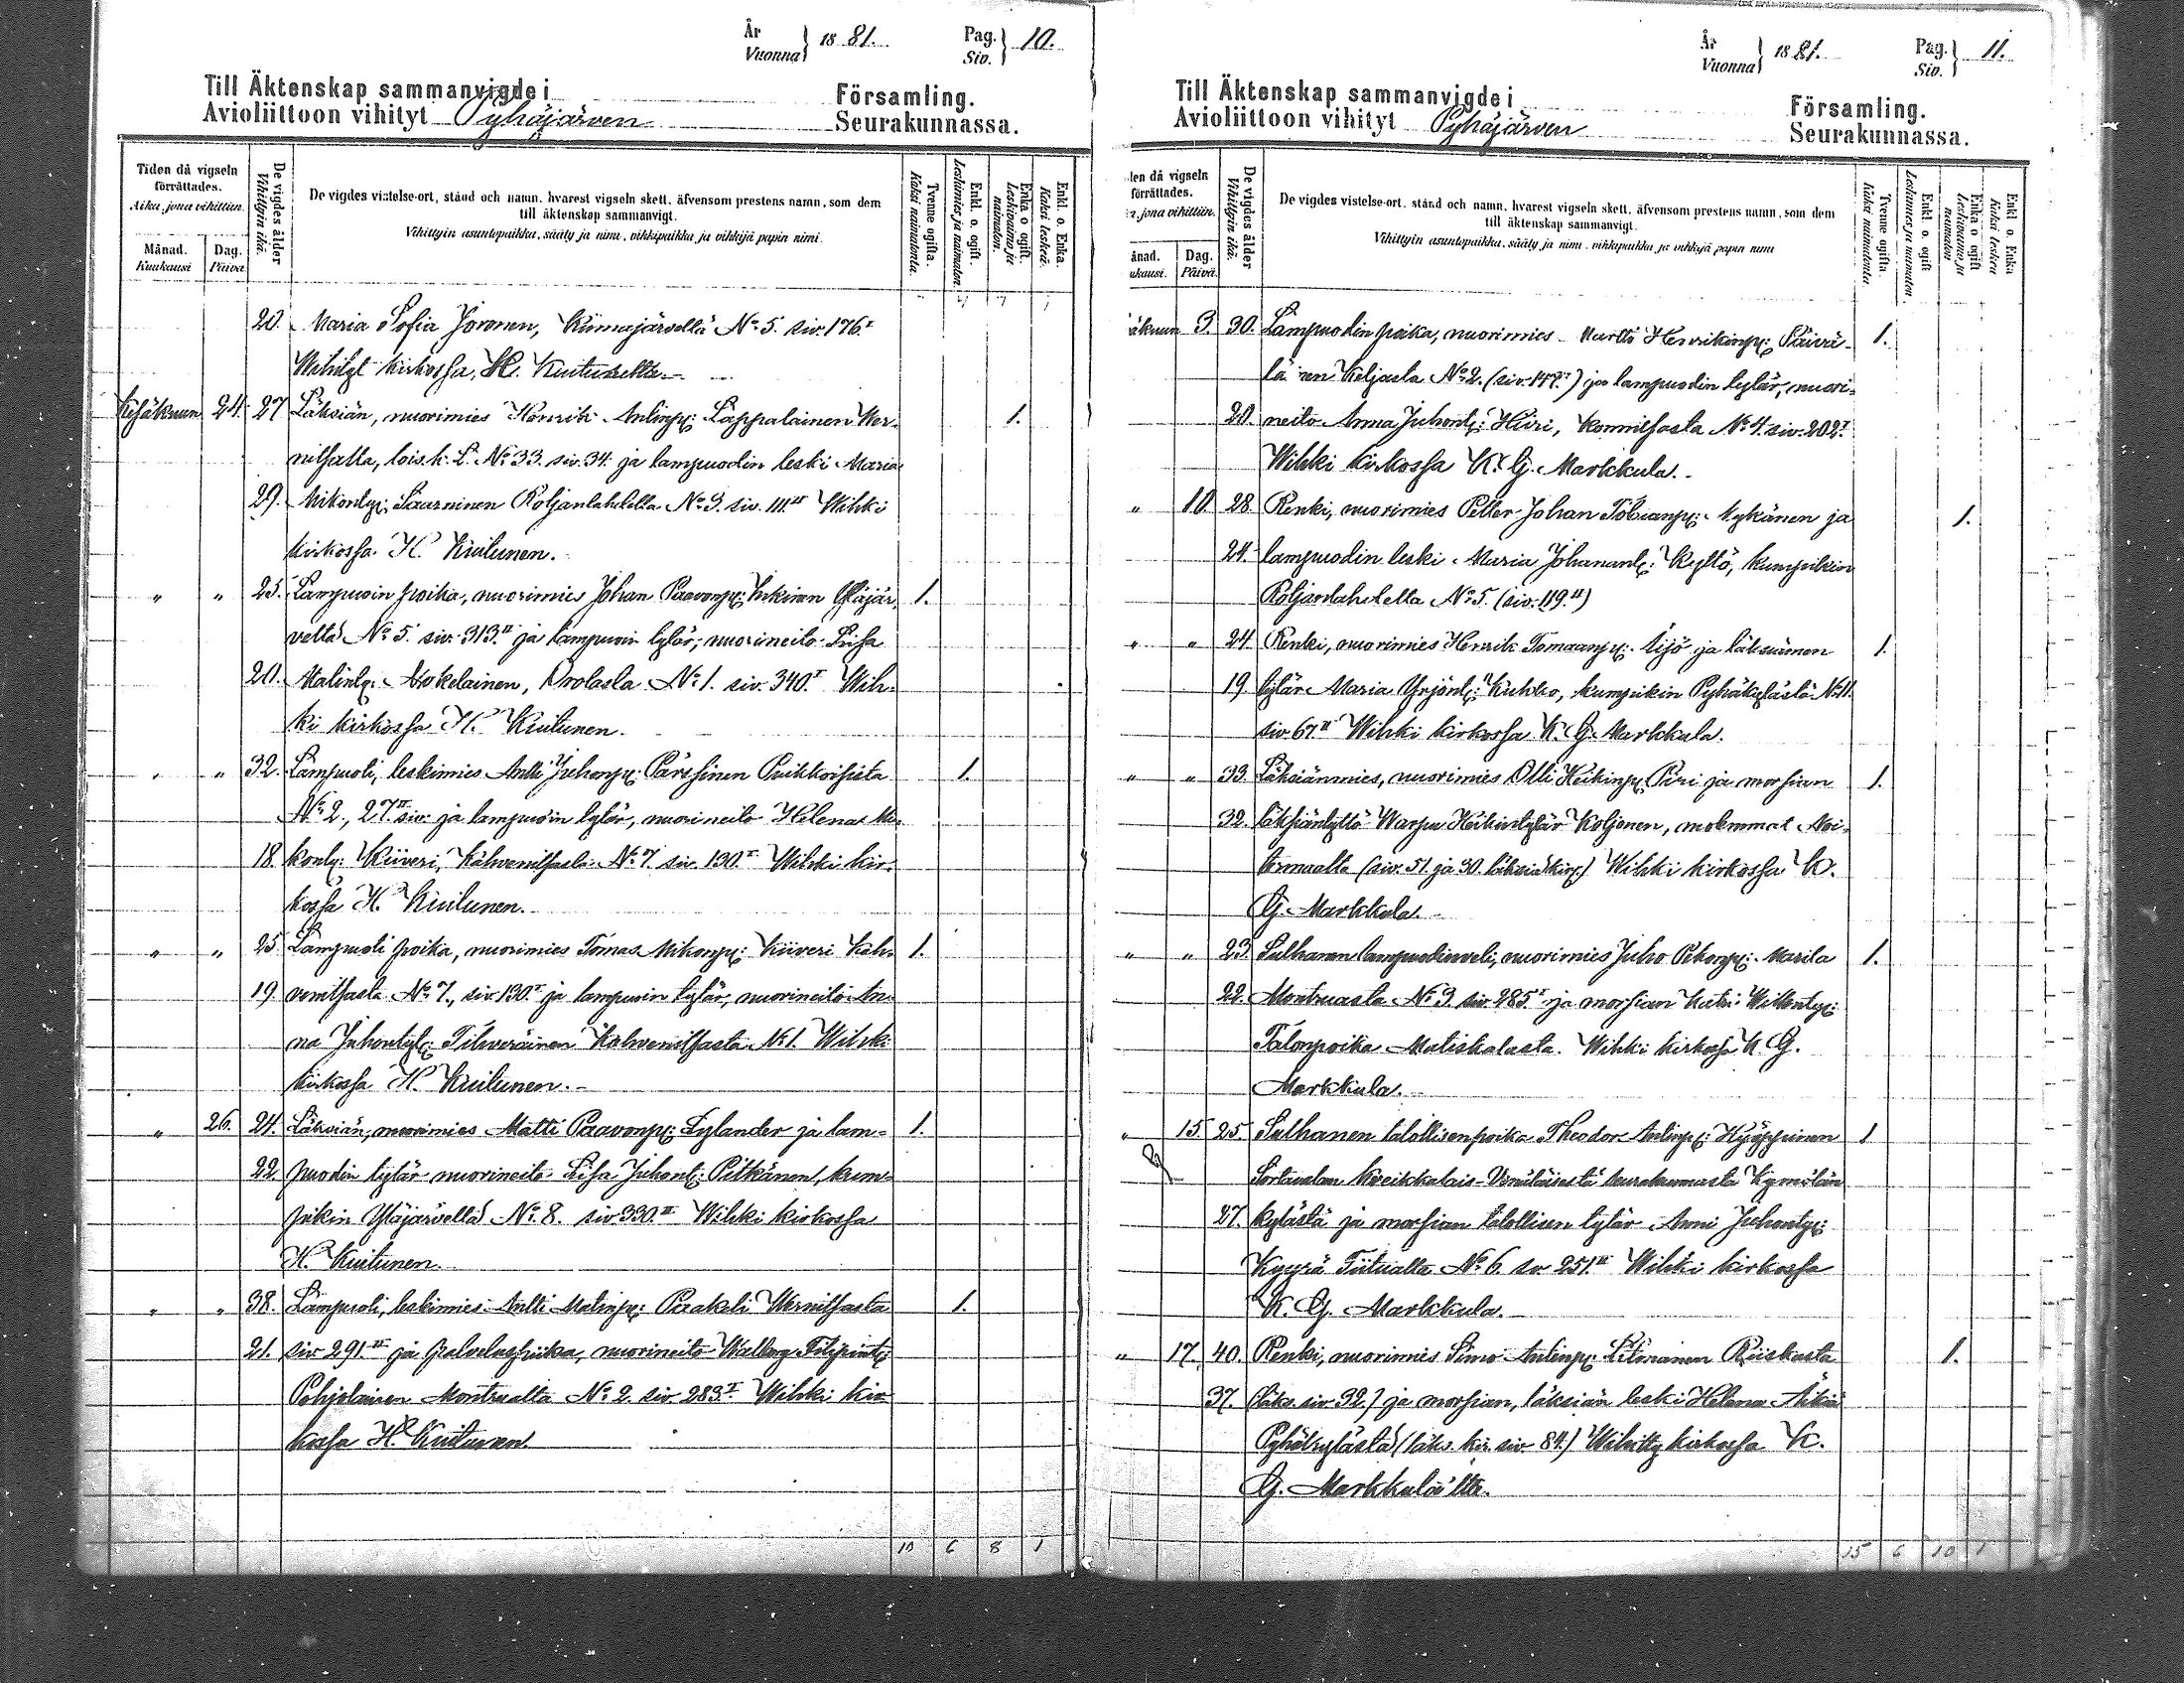 År
Vuonna } 1881.
Pag.
Siv. } 10.
Till Äktenskap sammanvigde i Församling.
Avioliittoon vihityt Pyhäjärven Seurakunnassa.
Tiden då vigseln förrättades.
Aika, jona vihittiin.
Månad. Kuukausi
Dag. Päivä
De vigdes ålder
Vihittyin ikä.
De vigdes vistelse-ort, stånd och namn, hvarest vigseln skett, äfvensom prestens namn, som dem
till äktenskap sammanvigt.
Vihittyin asuntopaikka, sääty ja nimi, vihkipaikka ja vihkijä papin nimi.
Tvenne ogifta.
Kaksi naimatonta.
Enkl. o. ogift.
Leskimies ja naimaton.
Enka o ogift.
Leskivaimo ja naimaton.
Enkl. o. Enka.
Kaksi leskeä.
20. Maria Sofia Joronen, Kiimajärvellä No 5. siv. 176.I
Wihityt kirkossa, H. Kuituselta.
Kesäkuun 24. 27 Läksiän, nuorimies Henrik Antinp: Lappalainen Wer-
nitsalla, lois.k. L. No 33. siv. 34. ja lampuodin leski Maria 1.
29. Mikontyt: Saarninen Rotjanlahdella No 3. siv. 111.II Wihki
kirkossa H. Kuitunen.
" " 25. Lampuoin poika, nuorimies Johan Paavonp: Inkinen Yläjär- 1.
veltä No 5. siv. 313.II ja lampuoin tytär, nuorineito Liisa
20. Matint: Mokelainen, Orolasta No 1. siv. 340.I Wih-
ki kirkossa H. Kuitunen.
" " 32. Lampuoti, leskimies Antti Juhonp: Pärssinen Puikkoisista 1.
No 2., 27.II siv. ja lampuoin tytär, nuorineito Helena Mi-
18. kont: Kiiveri, Kahvenitsasta No 7. siv. 130.I Wihki kir-
kossa H. Kuitunen.
" " 25 Lampuoti poika, nuorimies Tomas Mikonp: Kiiveri Kah- 1.
19 venitsasta No 7., siv. 130.I ja lampuoin tytär, nuorineito An-
na Juhontyt: Tihveräinen Kahvenitsasta No 1. Wihki
kirkossa H. Kuitunen.
" 26. 24. Läksiän, nuorimies Matti Paavonp: Lylander ja lam- 1.
22. puodin tytär nuorineito Liisa Juhont: Pitkänen, kum-
pikin Yläjärvellä No 8. siv 330.II Wihki kirkossa
H. Kuitunen.
" " 38. Lampuoti, leskimies Antti Matinp: Paakeli Wernitsasta 1.
21. siv 291.II ja palveluspiika, nuorineito Walborg Filipint:
Pohjolainen Montrualta No 2. siv. 283.I Wihki kir-
kossa H. Kuitunen.
10 6 8 1
År
Vuonna } 1881.
Pag.
Siv. } 11.
Till Äktenskap sammanvigde i Församling.
Avioliittoon vihityt Pyhäjärven Seurakunnassa.
den då vigseln förrättades.
a, jona vihittiin.
ånad. ukausi.
Dag. Päivä.
De vigdes ålder
Vihittyin ikä.
De vigdes vistelse-ort, stånd och namn, hvarest vigseln skett, äfvensom prestens namn, som dem
till äktenskap sammanvigt.
Vihittyin asuntopaikka, sääty ja nimi, vihkipaikka ja vihkijä papin nimi
Tvenne ogifta.
Kaksi naimatonta
Enkl. o. ogift
Leskimies ja naimaton
Enka o ogift
Leskivaimo ja naimaton
Enkl o. Enka
Kaksi leskeä
äkuun 3. 30. Lampuodin poika, nuorimies Martti Henrikinp: Päivä- 1.
läinen Keljasta No 2. (siv. 147.I) ja lampuodin tytär, nuori-
20. neito Anna Juhont: Hiiri, Konnitsasta No 4. siv. 202.I
Wihki kirkossa K. G. Markkula.
" 10 28. Renki, nuorimies Petter Johan Tobianp: Nykänen ja 1.
24. lampuodin leski Maria Johanant: Kyttö, kumpikin
Rotjanlahdella No 5. (siv. 119.II)
" " 24. Renki, nuorimies Henrik Tomaanp: Äijö ja läksiämen 1.
19. tytär Maria Yrjönt: Kuhko, kumpikin Pyhäkylästä No 11.
siv. 67.II Wihki kirkossa K. G. Markkula.
" " 33. Läksiänmies, nuorimies Olli Heikinp: Piiri ja morsian 1.
32. läksiäntyttö Warpu Heikintytär Koljonen, molemmat Noi-
termaalta (siv. 51. ja 30. läksiäkirj.) Wihki kirkossa K.
G. Markkula.
" " 23. Sulhanen lampuodinveli, nuorimies Juho Pekonp: Marila 1.
22. Montruasta No 3. siv. 285.I ja morsian Katri Willentyt:
Talonpoika Matiskalasta. Wihki kirkossa K. G.
Markkula.
" 15. 25. Sulhanen talollisenpoika Theodor Antinp: Hyyppinen 1
Sortavalan Kreikkalais-Venäläisestä seurakunnasta Kymölän
27. kylästä ja morsian talollisen tytär Anni Juhontyt:
Kyyrä Tiitualta No 6. siv 251.II Wihki kirkossa
K. G. Markkula.
" 17. 40. Renki, nuorimies Simo Antinp: Litmanen Riiskasta 1.
37. (läks. siv. 32.) ja morsian, läksiän leski Helena Äikiä
Pyhäkylästä (läks. kir. siv 84.) Wihitty kirkossa K.
G. Markkula'lta.
15 6 10 1